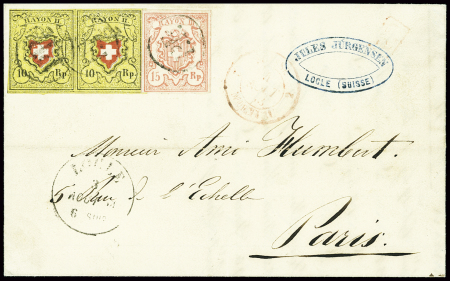 RAYON II. RAYON II. RAYON III.
10 Rp. 10 Rp. 15 Rp.
JULES JÜRGENSEN
LOCLE (SUISSE)
Monsieur Ami Humbert.
6 Rue de l'Echelle
Paris.
LOCLE